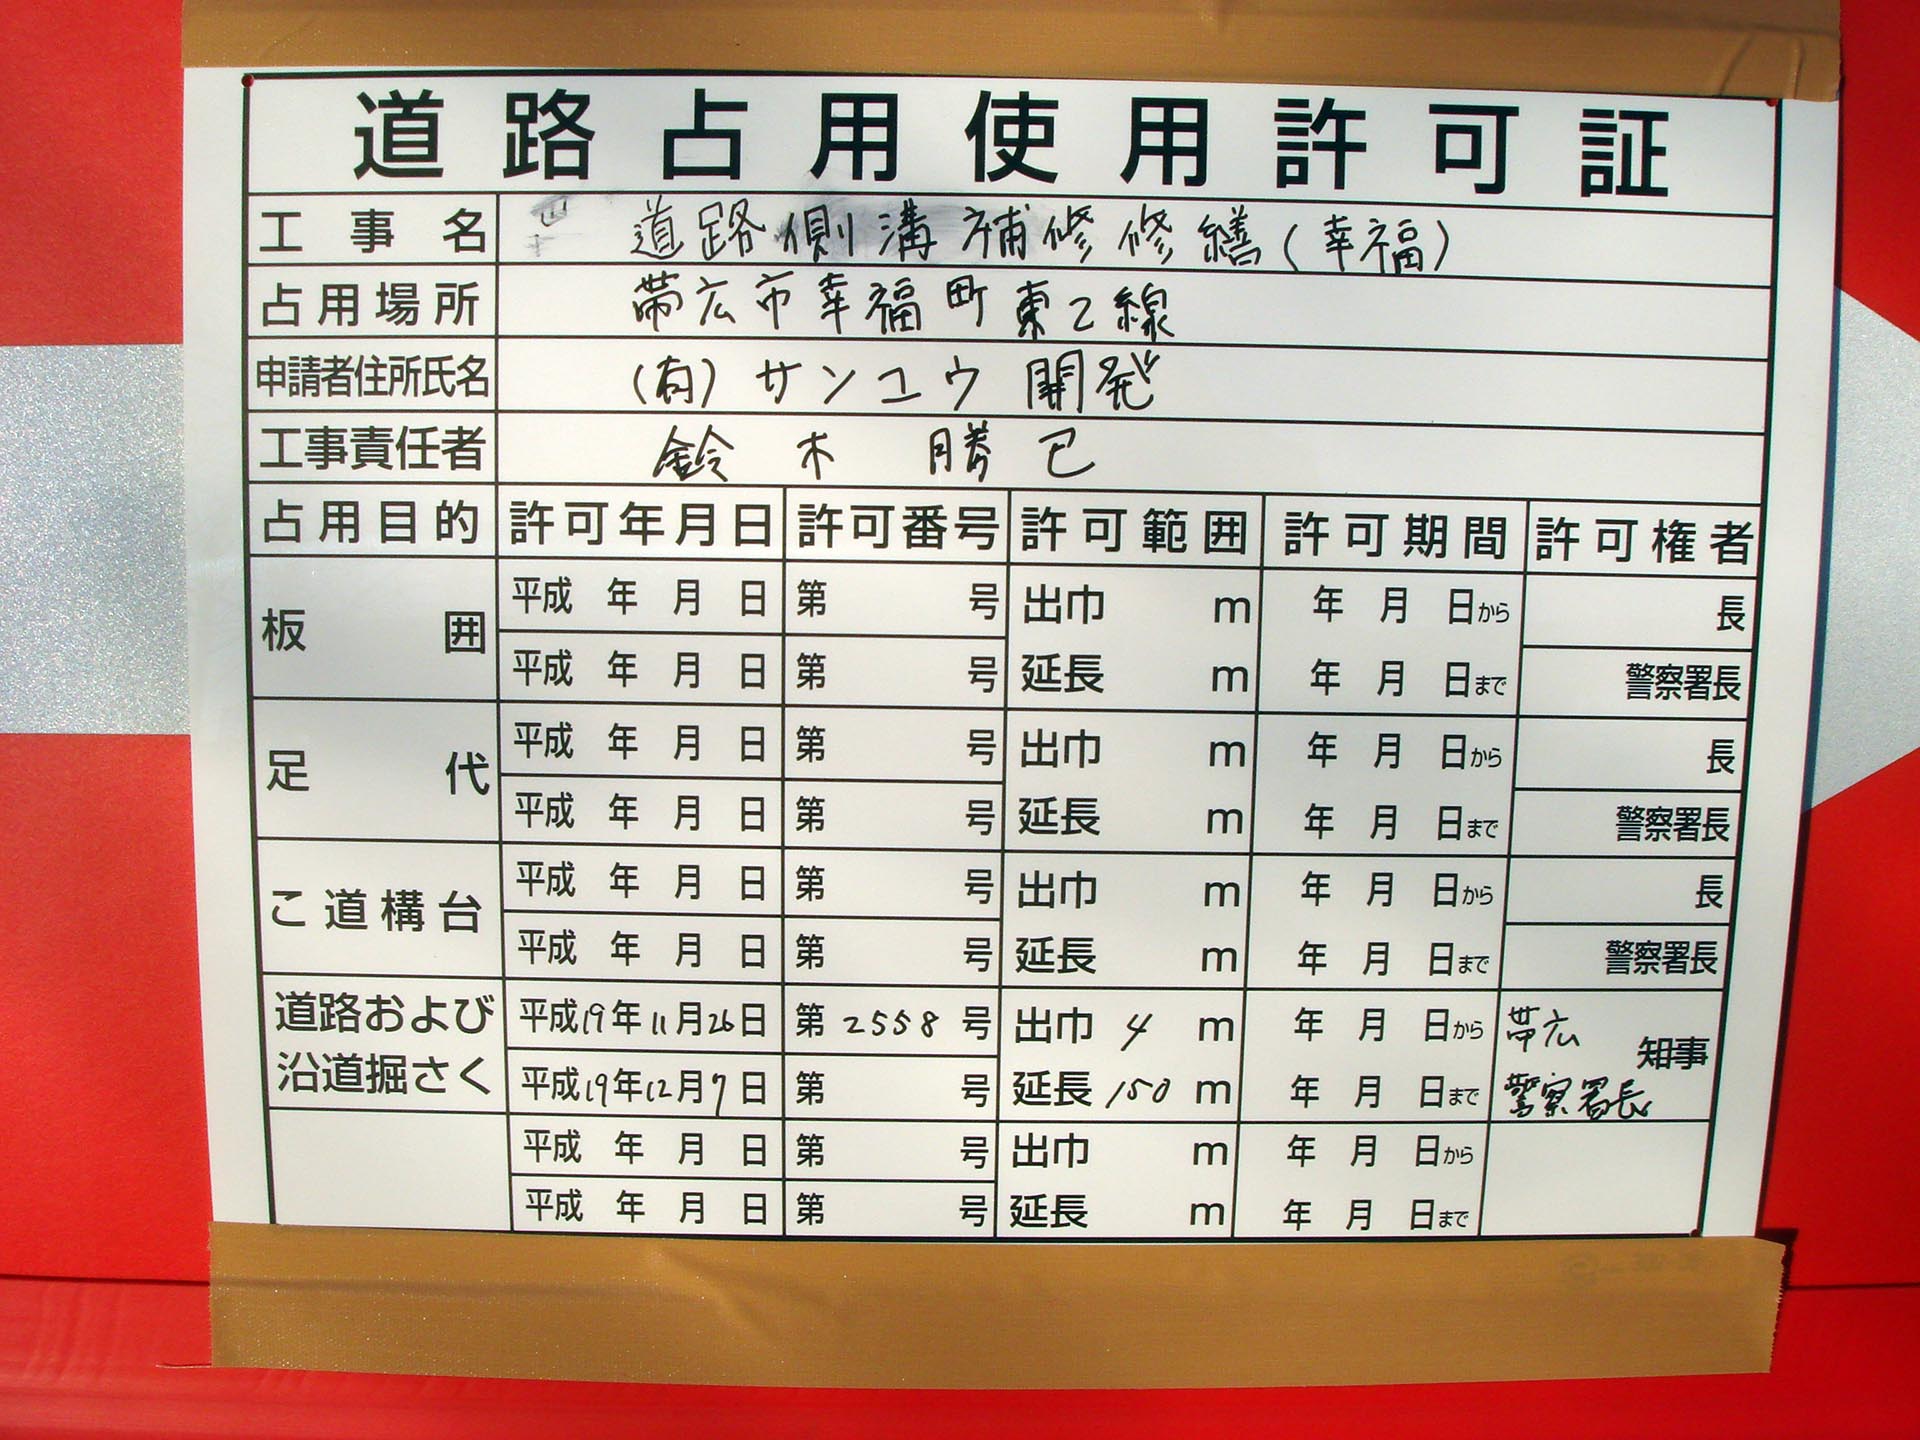 道路占用使用許可証
工事名 道路側溝補修修繕(幸福)
占用場所 帯広市幸福町東2線
申請者住所氏名 (有)サンユウ開発
工事責任者 鈴木勝己
占用目的 許可年月日 許可番号 許可範囲 許可期間 許可権者
板囲 平成 年 月 日 第 号 出巾 m 年 月 日から 長
平成 年 月 日 第 号 延長 m 年 月 日まで 警察署長
足代 平成 年 月 日 第 号 出巾 m 年 月 日から 長
平成 年 月 日 第 号 延長 m 年 月 日まで 警察署長
こ道構台 平成 年 月 日 第 号 出巾 m 年 月 日から 長
平成 年 月 日 第 号 延長 m 年 月 日まで 警察署長
道路および 平成19年11月26日 第2558号 出巾 4 m 年 月 日から 帯広 知事
沿道掘さく 平成19年12月7日 第 号 延長 150 m 年 月 日まで 警察署長
平成 年 月 日 第 号 出巾 m 年 月 日から
平成 年 月 日 第 号 延長 m 年 月 日まで